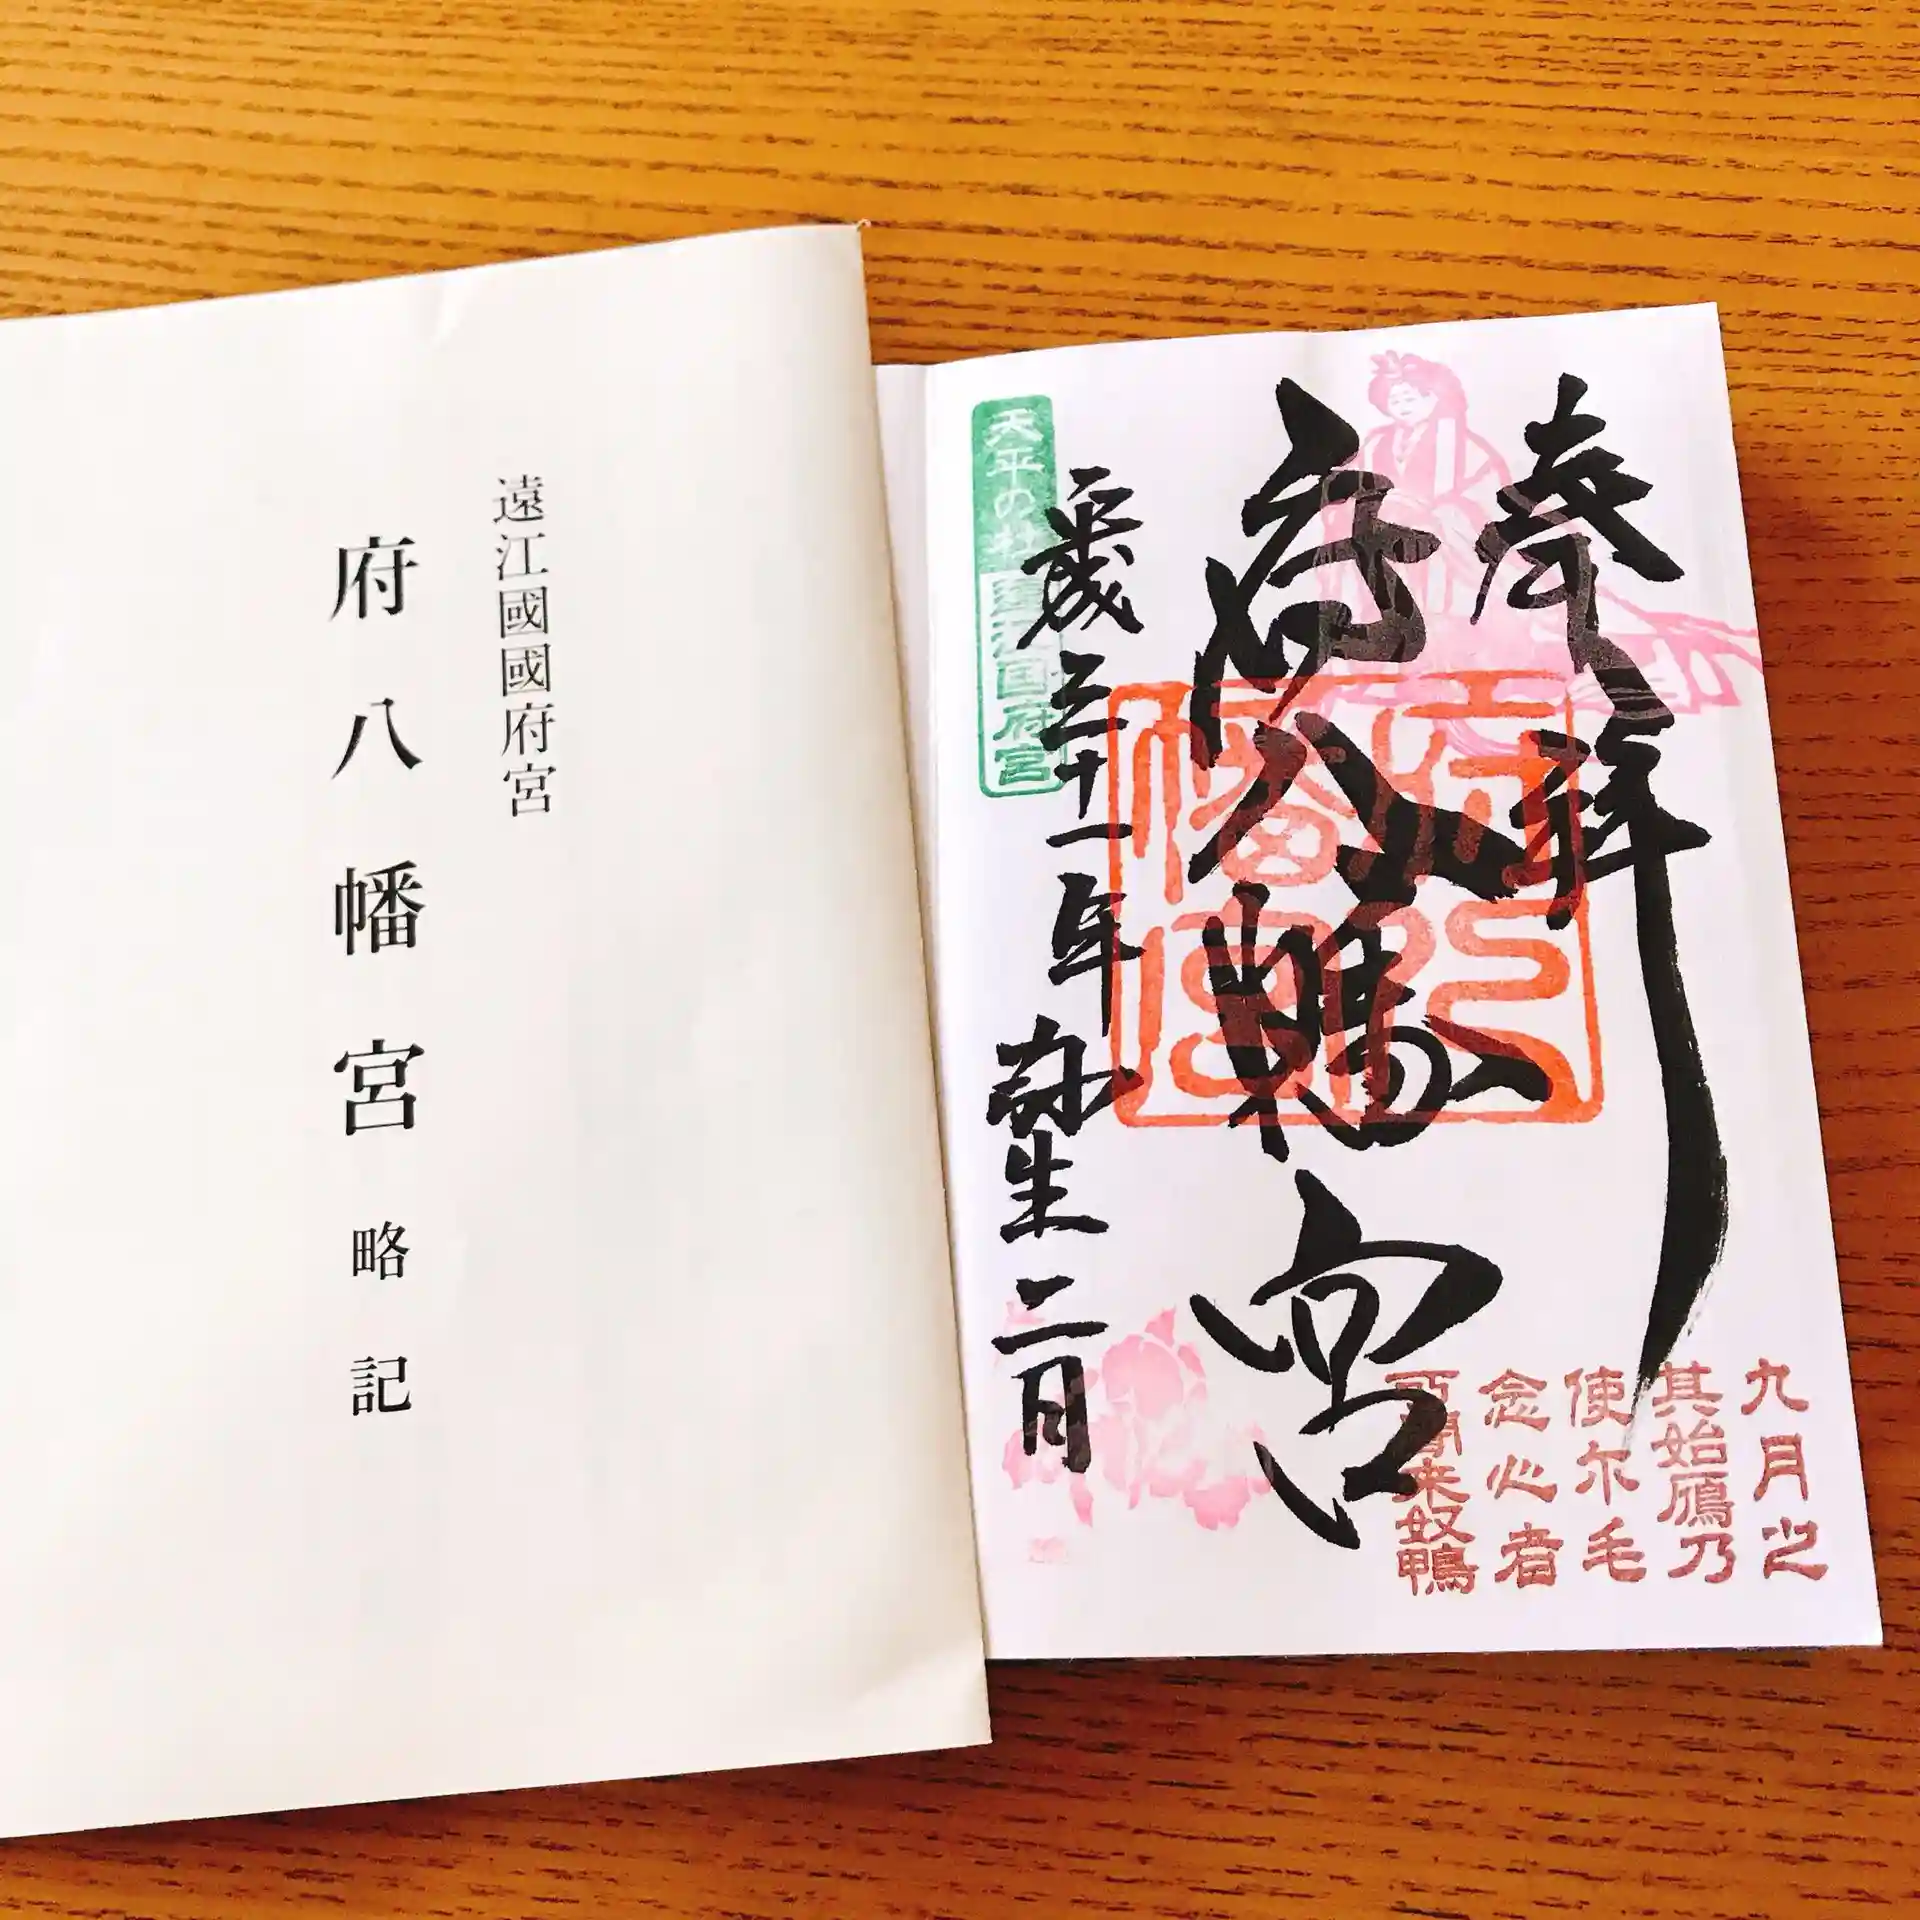 遠江國國府宮
府八幡宮 略記
奉拝
府八幡宮
平成三十一年 弥生 二日
天平の社 遠江国府宮
府八
幡宮
九月之
其始鴈乃
使尓毛
念心者
所聞来奴鴨